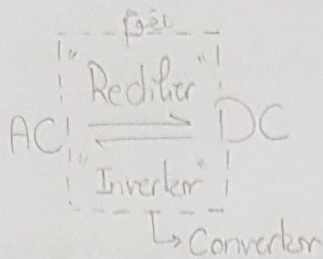 "Rectifier"
AC ⇌ DC
"Inverter"
↳ Converter